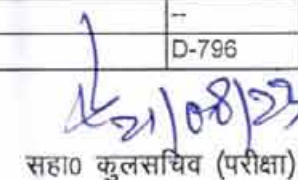 --
D-796
21/08/23
सहा० कुलसचिव (परीक्षा)